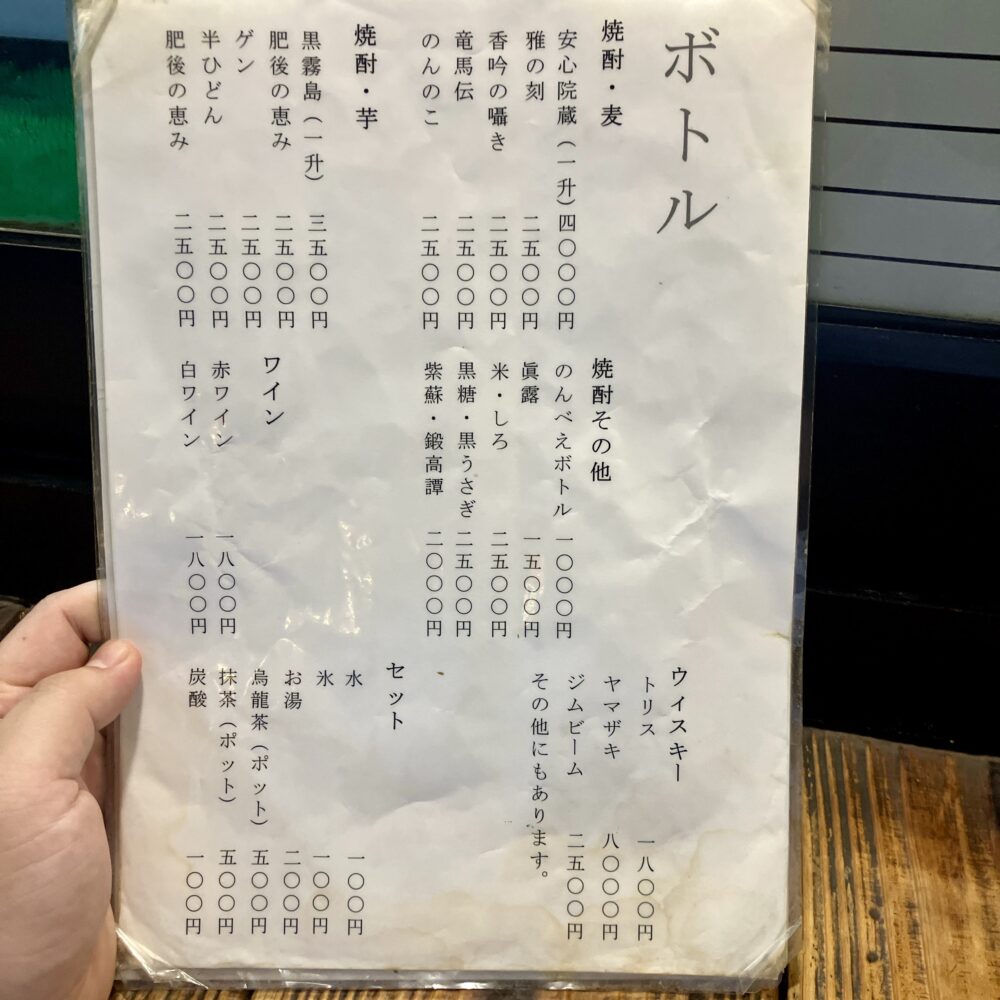 ボトル
焼酎・麦
安心院蔵（一升）四〇〇〇円
雅の刻 二五〇〇円
香吟の囁き 二五〇〇円
竜馬伝 二五〇〇円
のんのこ 二五〇〇円
焼酎・芋
黒霧島（一升） 三五〇〇円
肥後の恵み 二五〇〇円
ゲン 二五〇〇円
半ひどん 二五〇〇円
肥後の恵み 二五〇〇円
焼酎その他
のんべえボトル 一〇〇〇円
眞露 一五〇〇円
米・しろ 二五〇〇円
黒糖・黒うさぎ 二五〇〇円
紫蘇・鍛高譚 二〇〇〇円
ワイン
赤ワイン 一八〇〇円
白ワイン 一八〇〇円
ウィスキー
トリス 一八〇〇円
ヤマザキ 八〇〇〇円
ジムビーム 二五〇〇円
その他にもあります。
セット
水 一〇〇円
氷 一〇〇円
お湯 二〇〇円
烏龍茶（ポット） 五〇〇円
抹茶（ポット） 五〇〇円
炭酸 一〇〇円